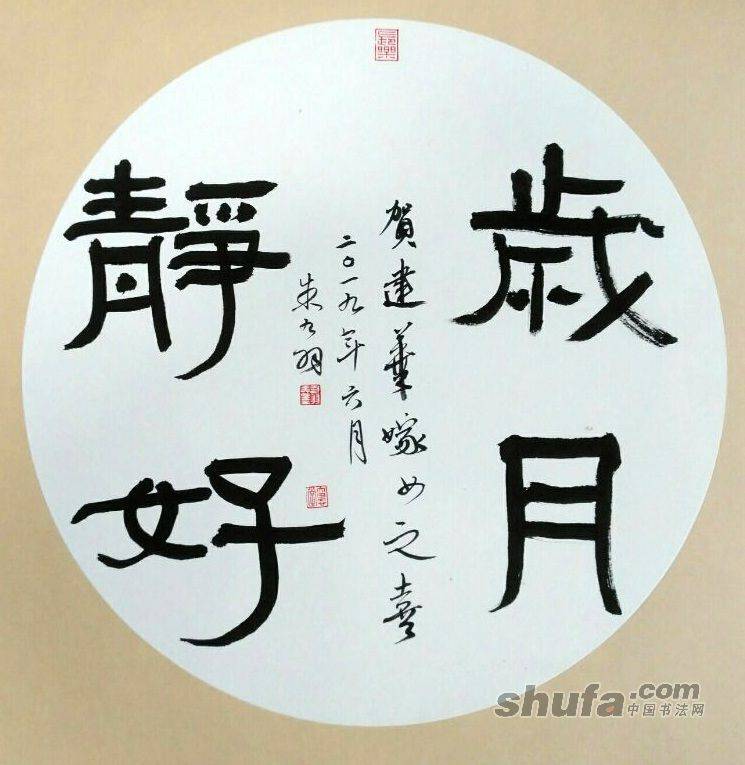 歲月
靜好
賀建華嫁女之喜
二〇一九年六月
朱九羽
shufa.com
中国书法网